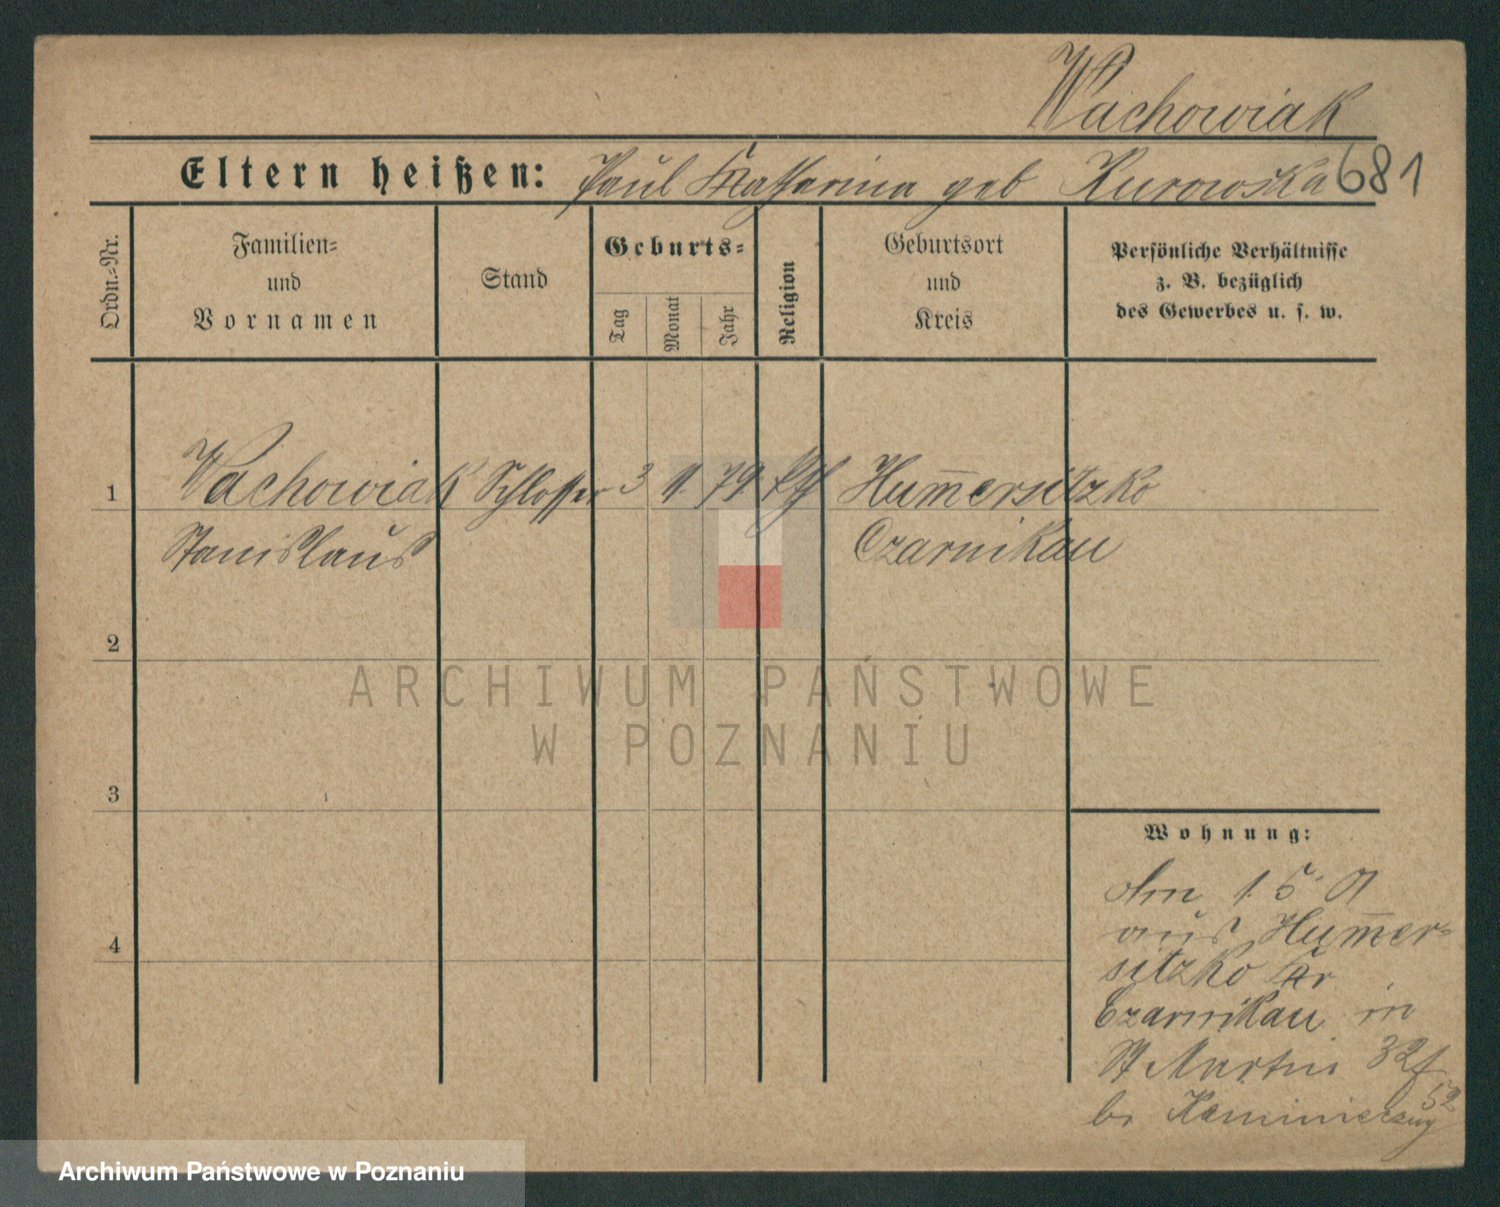 Wachowiak
Eltern heißen: Paul Katharina geb Kurowska 681
Ordn.=Nr.
Familien=
und
Vornamen
Stand
Geburts=
Tag
Monat
Jahr
Religion
Geburtsort
und
Kreis
Persönliche Verhältnisse
z. B. bezüglich
des Gewerbes u. s. w.
1 Wachowiak Schlosser 3 79 kth Hum̅ersitzko
Stanislaus Czarnikau
2
ARCHIWUM PAŃSTWOWE
W POZNANIU
3
Wohnung:
1. 5.
aus Hum̅er=
sitzko Kr
Czarnikau in
St Martin 32
52
bei
4
Archiwum Państwowe w Poznaniu